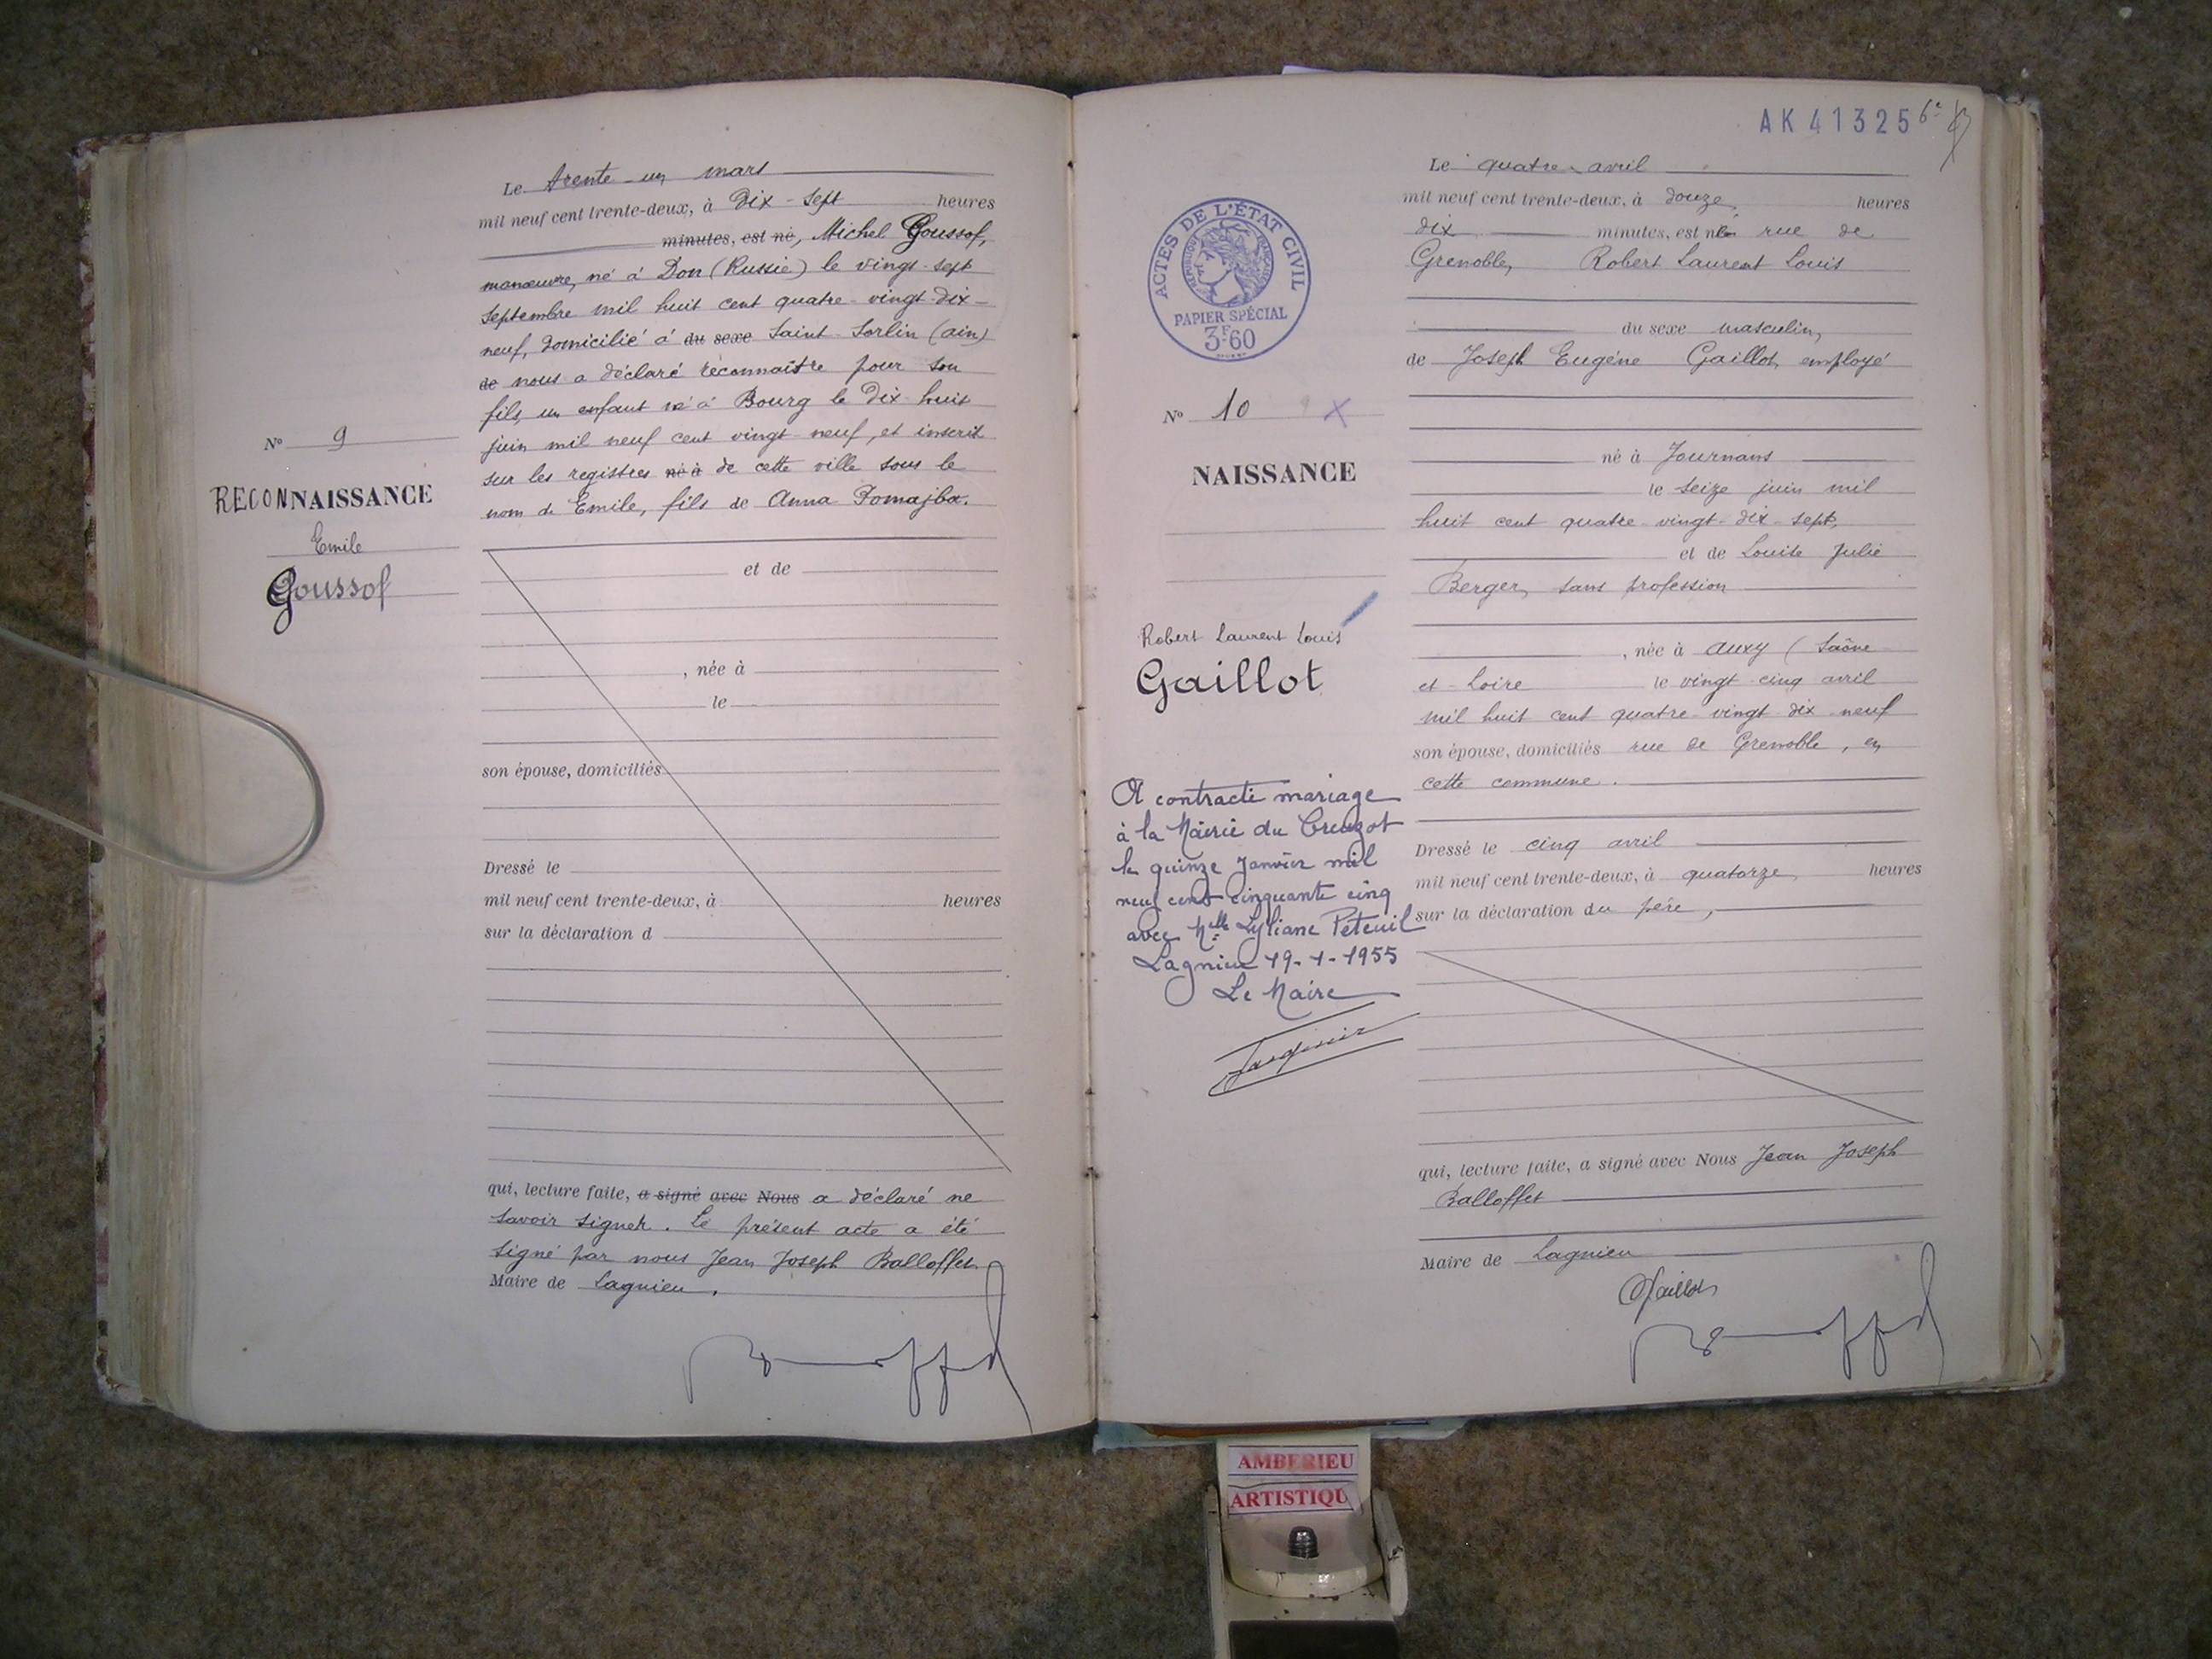 Le trente-un mars
mil neuf cent trente-deux, à dix-sept heures
minutes, est né, Michel Goussof,
manœuvre, né à Don (Russie) le vingt-sept
septembre mil huit cent quatre-vingt-dix-
neuf, domicilié à du sexe Saint-Sorlin (ain)
de nous a déclaré reconnaître pour son
fils, un enfant né à Bourg le dix-huit
juin mil neuf cent vingt-neuf, et inscrit
sur les registres né à de cette ville sous le
nom de Emile, fils de Anna Domajba.
N° 9
RECONNAISSANCE
Emile
Goussof
et de
, née à
le
son épouse, domiciliés
Dressé le
mil neuf cent trente-deux, à heures
sur la déclaration d
qui, lecture faite, a signé avec Nous a déclaré ne
savoir signer. Le présent acte a été
signé par nous Jean Joseph Balloffet
Maire de Lagnieu.
AK 41325 6e
ACTES DE L'ÉTAT CIVIL
RÉPUBLIQUE FRANÇAISE
PAPIER SPÉCIAL
3F60
N° 10 X
NAISSANCE
Robert Laurent Louis
Gaillot
A contracté mariage
à la Mairie du Creuzot
le quinze Janvier mil
neuf cent cinquante cinq
avec Mlle Lyliane Peteuil
Lagnieu 19-1-1955
Le Maire
Le quatre avril
mil neuf cent trente-deux, à douze heures
dix minutes, est né rue de
Grenoble, Robert Laurent Louis
du sexe masculin,
de Joseph Eugène Gaillot, employé
né à Journans
le seize juin mil
huit cent quatre-vingt-dix-sept,
et de Louise Julie
Berger, sans profession
, née à Auxy (Saône
et-Loire le vingt-cinq avril
mil huit cent quatre-vingt-dix-neuf
son épouse, domiciliés rue de Grenoble, en
cette commune.
Dressé le cinq avril
mil neuf cent trente-deux, à quatorze heures
sur la déclaration du père,
qui, lecture faite, a signé avec Nous Jean Joseph
Balloffet
Maire de Lagnieu
Gaillot
AMBERIEU
ARTISTIQU